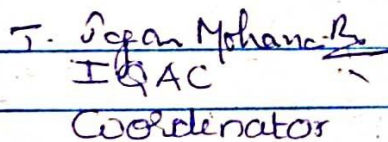 T. Jagan Mohana Rao
IQAC
Coordinator